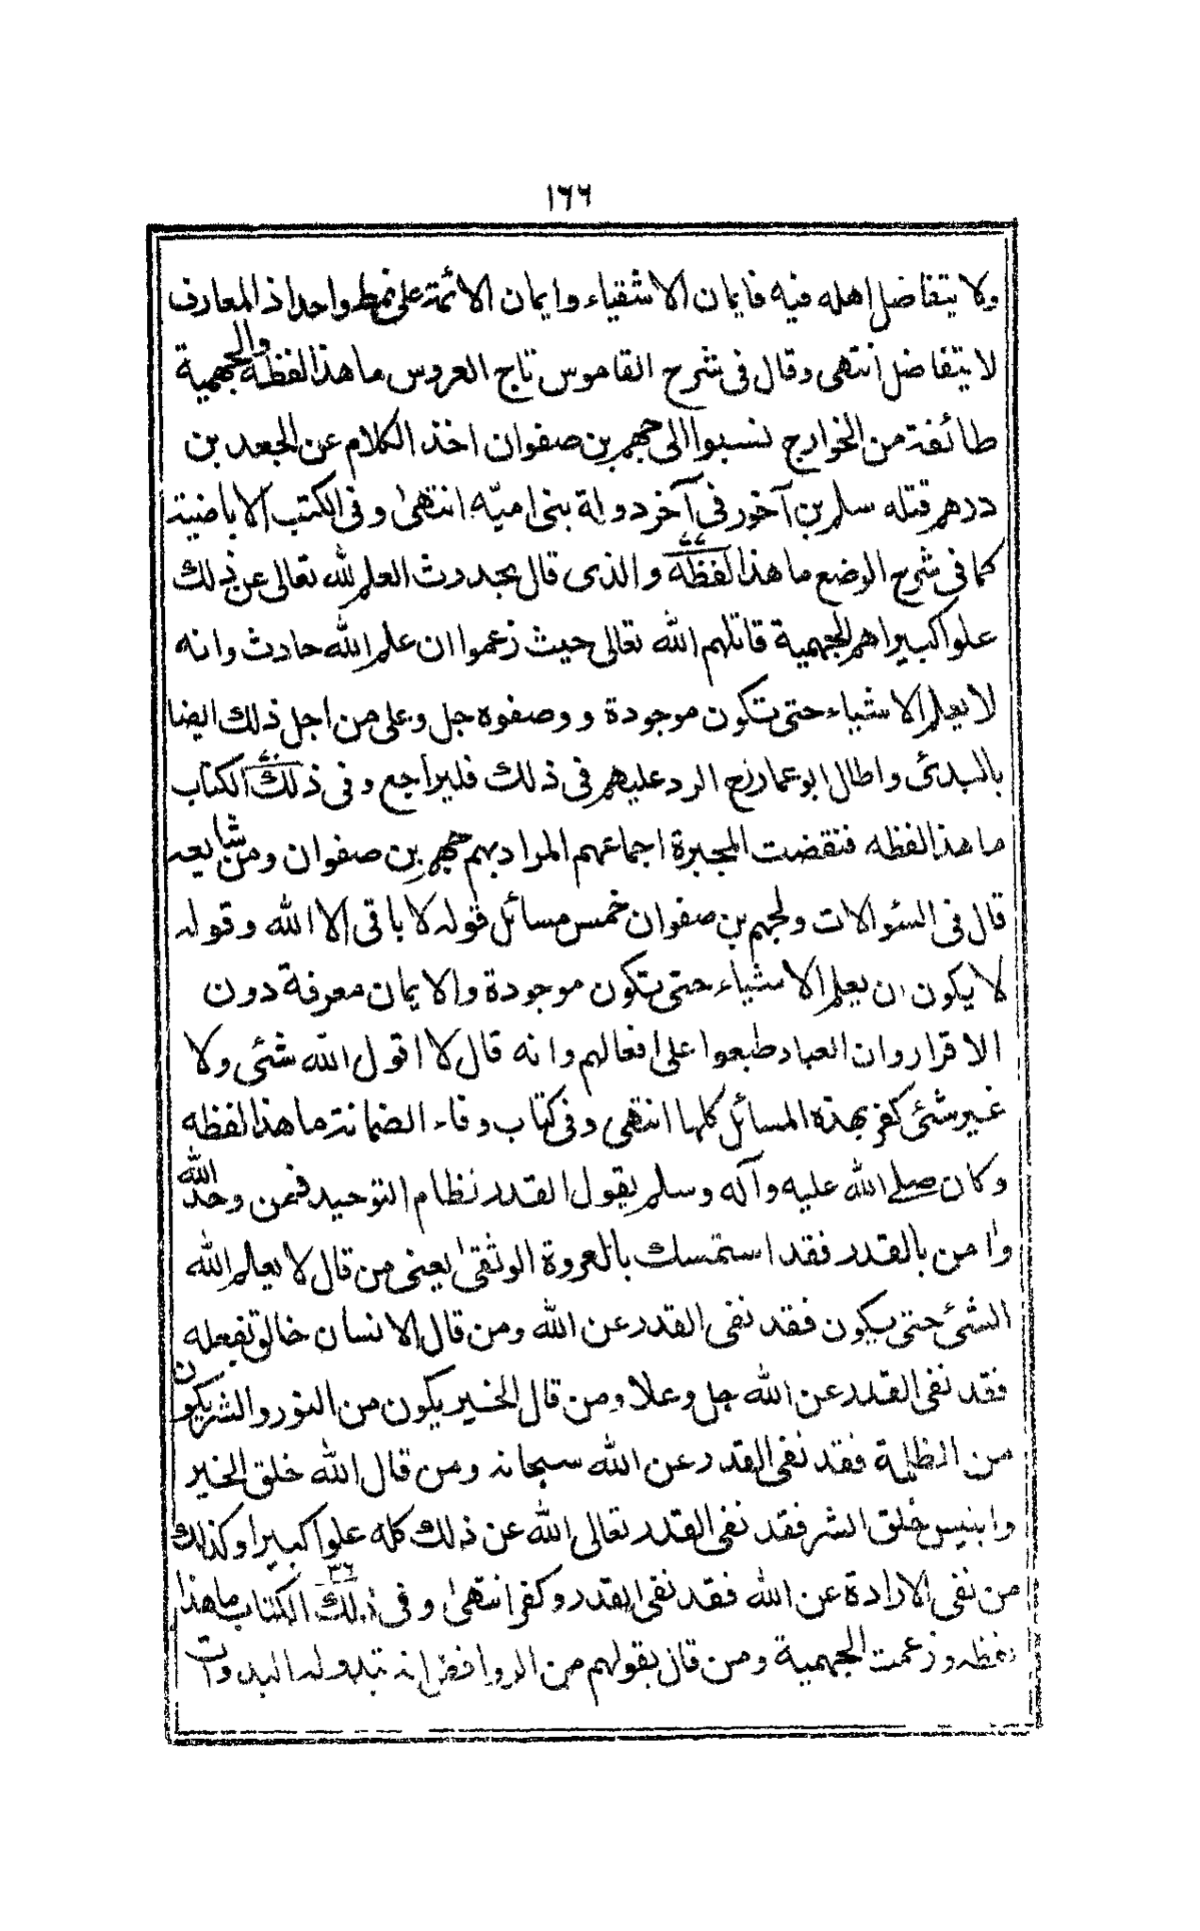 ١٦٦
ولا يتفاضل اهله فيه فايمان الاشقياء وايمان الائمة على نمط واحد اذ المعارف
لا يتفاضل انتهى وقال فى شرح القاموس تاج العروس ما هذا لفظه والجهمية
طائفة من الخوارج نسبوا الى جهم بن صفوان اخذ الكلام عن الجعد بن
درهم قتله سلم بن آخور فى آخر دولة بنى اميّه انتهىٰ وفى الكتب الاباضية
كما فى شرح الوضع ما هذا لفظه والذى قال بحدوث العلم لله تعالى عن ذلك
علوا كبيرا هم الجهمية قاتلهم الله تعالى حيث زعموا ان علم الله حادث وانه
لا يعلم الاشياء حتى تكون موجودة ووصفوه جل وعلى من اجل ذلك ايضا
بالبدئ واطال ابو عمار رح الرد عليهم فى ذلك فليراجع وفى ذلك الكتاب
ما هذا لفظه فنقضت المجبرة اجماعهم المراد بهم جهم بن صفوان ومن شايعه
قال فى السئوالات ولجهم بن صفوان خمس مسائل قوله لا باقى الا الله وقوله
لا يكون ان يعلم الاشياء حتى تكون موجودة والايمان معرفة دون
الاقرار وان العباد طبعوا على افعالهم وانه قال لا اقول الله شئى ولا
غير شئى كفر بهذه المسائل كلها انتهى وفى كتاب وفاء الضمانة ما هذا لفظه
وكان صلے الله عليه وآله وسلم يقول القدر نظام التوحيد فمن وحد الله
وامن بالقدر فقد استمسك بالعروة الوثقىٰ يعنى من قال لا يعلم الله
الشئ حتى يكون فقد نفى القدر عن الله ومن قال الانسان خالق لفعله
فقد نفى القدر عن الله جل وعلا ومن قال الخير يكون من النور والشر يكون
من الظلمة فقد نفى القدر عن الله سبحانه ومن قال الله خلق الخير
وابليس خلق الشر فقد نفى القدر تعالى الله عن ذلك كله علوا كبيرا وكذلك
من نفى الارادة عن الله فقد نفى القدر وكفر انتهىٰ وفى ذلك الكتاب ما هذا
لفظه وزعمت الجهمية ومن قال بقولهم من الروافض انه تبدو له البدوات